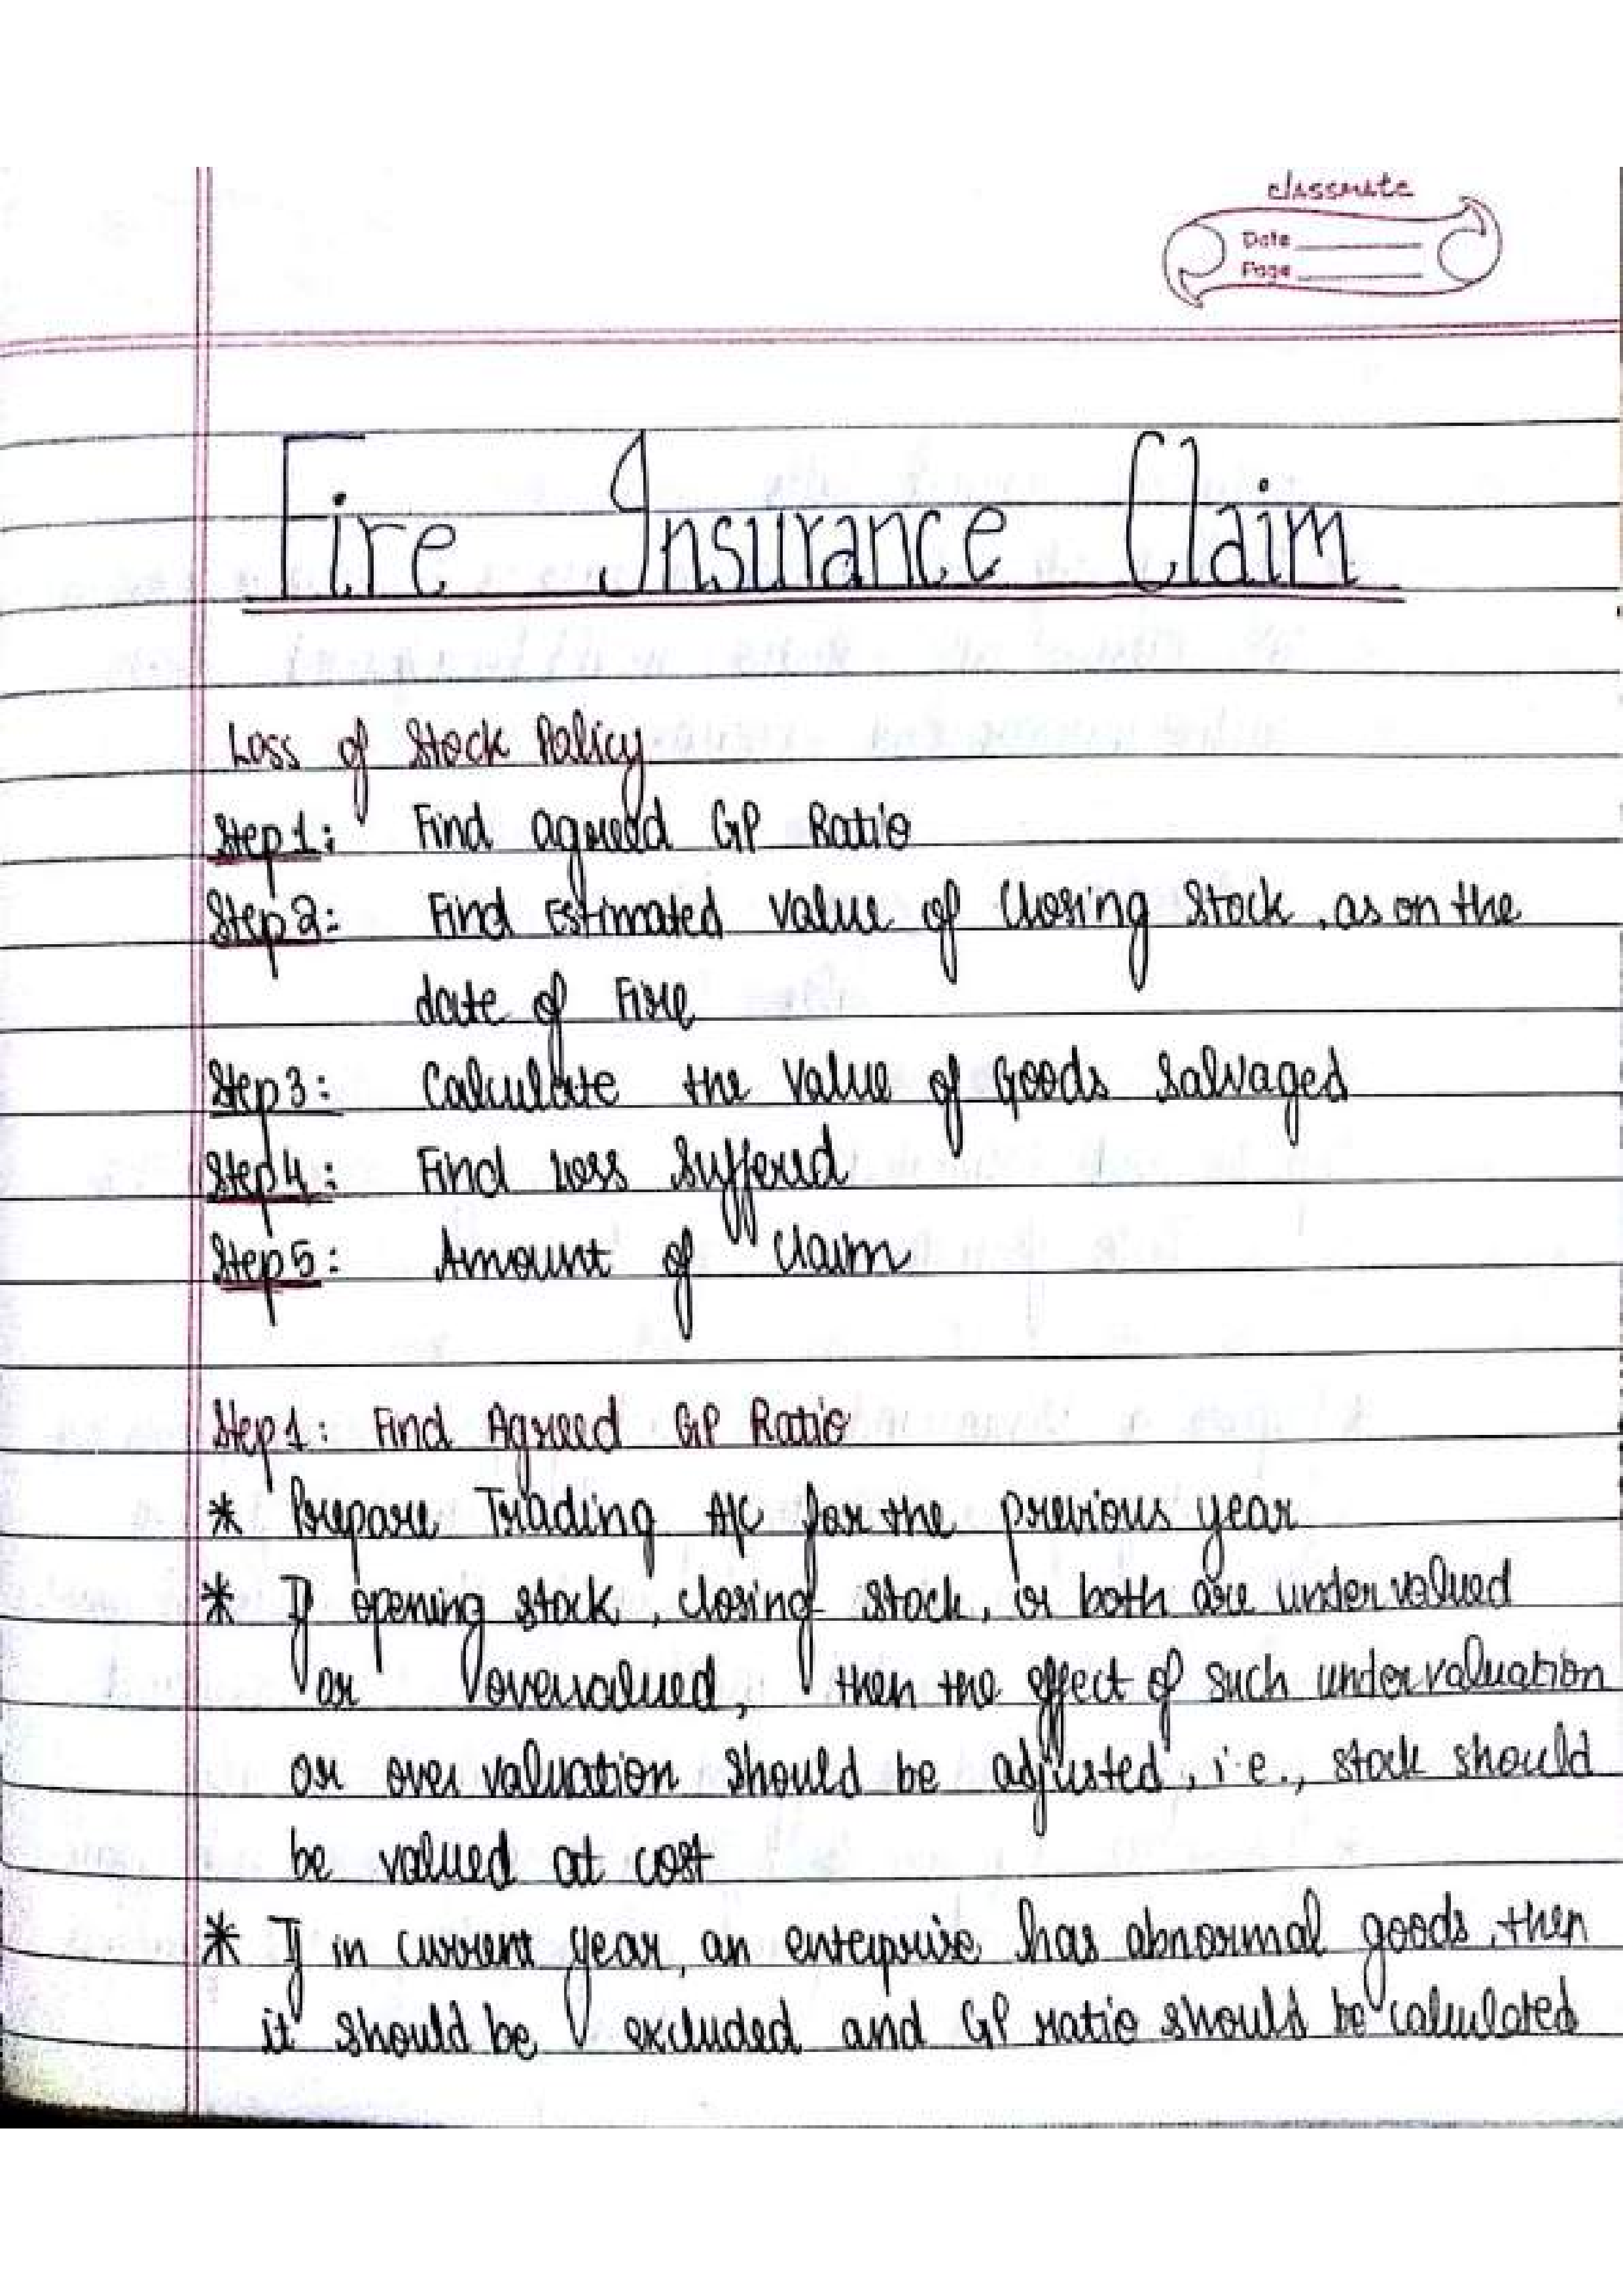 classmate
Date
Page
Fire Insurance Claim
Loss of Stock Policy
Step 1: Find agreed GP Ratio
Step 2: Find Estimated Value of Closing Stock, as on the
date of Fire
Step 3: Calculate the Value of Goods Salvaged
Step 4: Find Loss Suffered
Step 5: Amount of Claim
Step 1: Find Agreed GP Ratio
* Prepare Trading A/c for the previous year
* If opening stock, closing stock, or both are undervalued
or overvalued, then the effect of such undervaluation
or over valuation should be adjusted, i.e., stock should
be valued at cost
* If in current year, an enterprise has abnormal goods, then
it should be excluded and GP ratio should be calculated